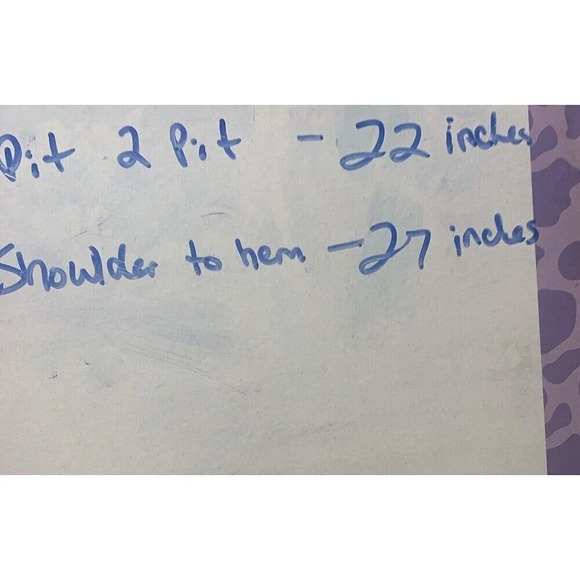 Pit 2 Pit - 22 inches
Showlder to hem - 27 inches